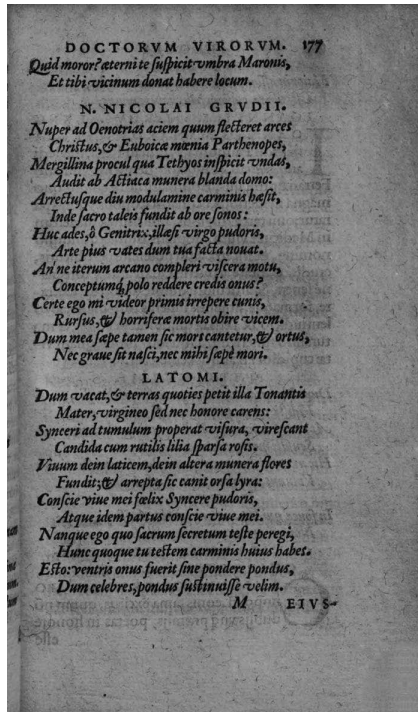 DOCTORVM VIRORVM. 177
Quid moror? æterni te ſuſpicit vmbra Maronis,
Et tibi vicinum donat habere locum.
N. NICOLAI GRVDII.
Nuper ad Oenotrias aciem quum flecteret arces
Chriſtus, & Euboicæ mœnia Parthenopes,
Mergillina procul qua Tethyos inſpicit vndas,
Audit ab Actiaca munera blanda domo:
Arrectuſque diu modulamine carminis hæſit,
Inde ſacro taleis fundit ab ore ſonos:
Huc ades, ô Genitrix, illæſi virgo pudoris,
Arte pius vates dum tua facta nouat.
An' ne iterum arcano compleri viſcera motu,
Conceptumq; polo reddere credis onus?
Certe ego mi videor primis irrepere cunis,
Rurſus, & horriferæ mortis obire vicem.
Dum mea ſæpe tamen ſic mors cantetur, & ortus,
Nec graue ſit naſci, nec mihi ſæpè mori.
LATOMI.
Dum vacat, & terras quoties petit illa Tonantis
Mater, virgineo ſed nec honore carens:
Synceri ad tumulum properat viſura, vireſcant
Candida cum rutilis lilia ſparſa roſis.
Viuum dein laticem, dein altera munera flores
Fundit; & arrepta ſic canit orſa lyra:
Conſcie viue mei fœlix Syncere pudoris,
Atque idem partus conſcie viue mei.
Nanque ego quo ſacrum ſecretum teſte peregi,
Hunc quoque tu teſtem carminis huius habes.
Eſto: ventris onus fuerit ſine pondere pondus,
Dum celebres, pondus ſuſtinuiſſe velim.
M EIVS-